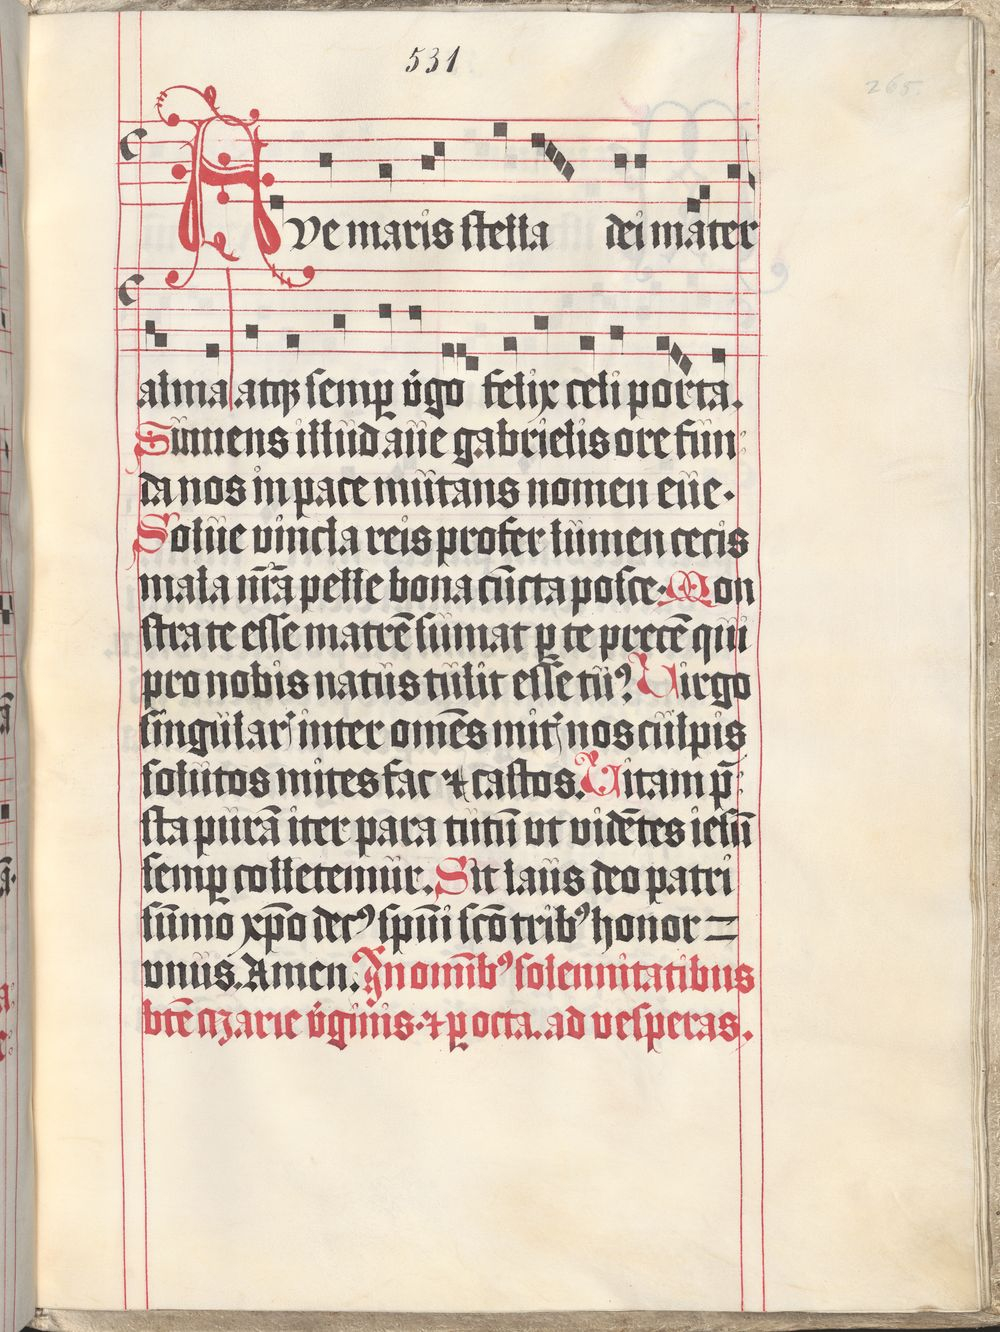 531
265.
Ave maris stella dei mater
alma atqꝫ semꝑ v̄go felix celi porta.
Sumens illud aue gabrielis ore fun
da nos in pace mutans nomen eue.
Solue vincla reis profer lumen cecis
mala nr̄a pelle bona cūcta posce. Mon
stra te esse matrē sumat ꝑ te precē qui
pro nobis natus tulit esse tuꝰ Uirgo
singularꝭ inter omēs mitꝭ nos culpis
solutos mites fac ⁊ castos. Uitam p̄
sta purā iter para tutū vt vidētes iesū
semꝑ colletemur. Sit laus deo patri
sūmo xp̄o decꝰ spūi scō tribꝰ honor
vnus. Amen. In omībꝰ solennitatibus
btē marie v̄ginis. ⁊ ꝑ octa. ad vesperas.